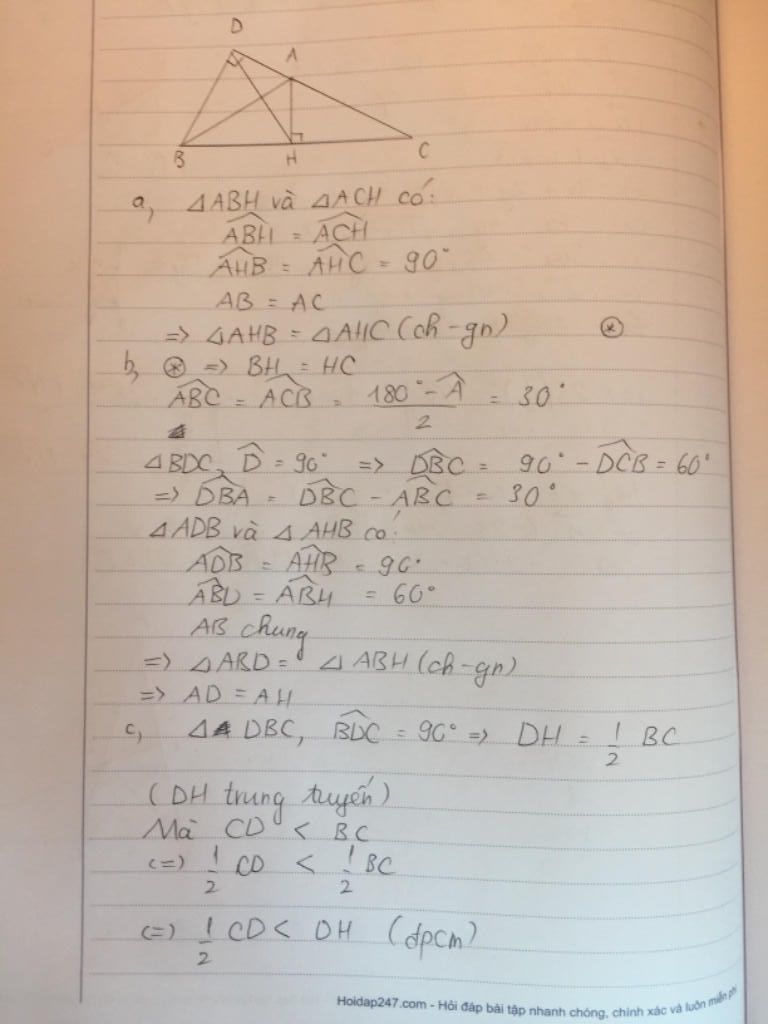 D
A
B
H
C
a, △ABH và △ACH có:
$\widehat{ABH} = \widehat{ACH}$
$\widehat{AHB} = \widehat{AHC} = 90°$
AB = AC
=> △AHB = △AHC (ch - gn) ⊛
b, ⊛ => BH = HC
$\widehat{ABC} = \widehat{ACB} = \frac{180° - \widehat{A}}{2} = 30°$
△BDC, $\widehat{D} = 90°$ => $\widehat{DBC} = 90° - \widehat{DCB} = 60°$
=> $\widehat{DBA} = \widehat{DBC} - \widehat{ABC} = 30°$
△ADB và △AHB có:
$\widehat{ADB} = \widehat{AHB} = 90°$
$\widehat{ABD} = \widehat{ABH} = 60°$
AB chung
=> △ABD = △ABH (ch - gn)
=> AD = AH
c, △DBC, $\widehat{BDC} = 90°$ => DH = $\frac{1}{2}$ BC
(DH trung tuyến)
Mà CD < BC
(=) $\frac{1}{2}$ CD < $\frac{1}{2}$ BC
(=) $\frac{1}{2}$ CD < DH (đpcm)
Hoidap247.com - Hỏi đáp bài tập nhanh chóng, chính xác và luôn miễn phí